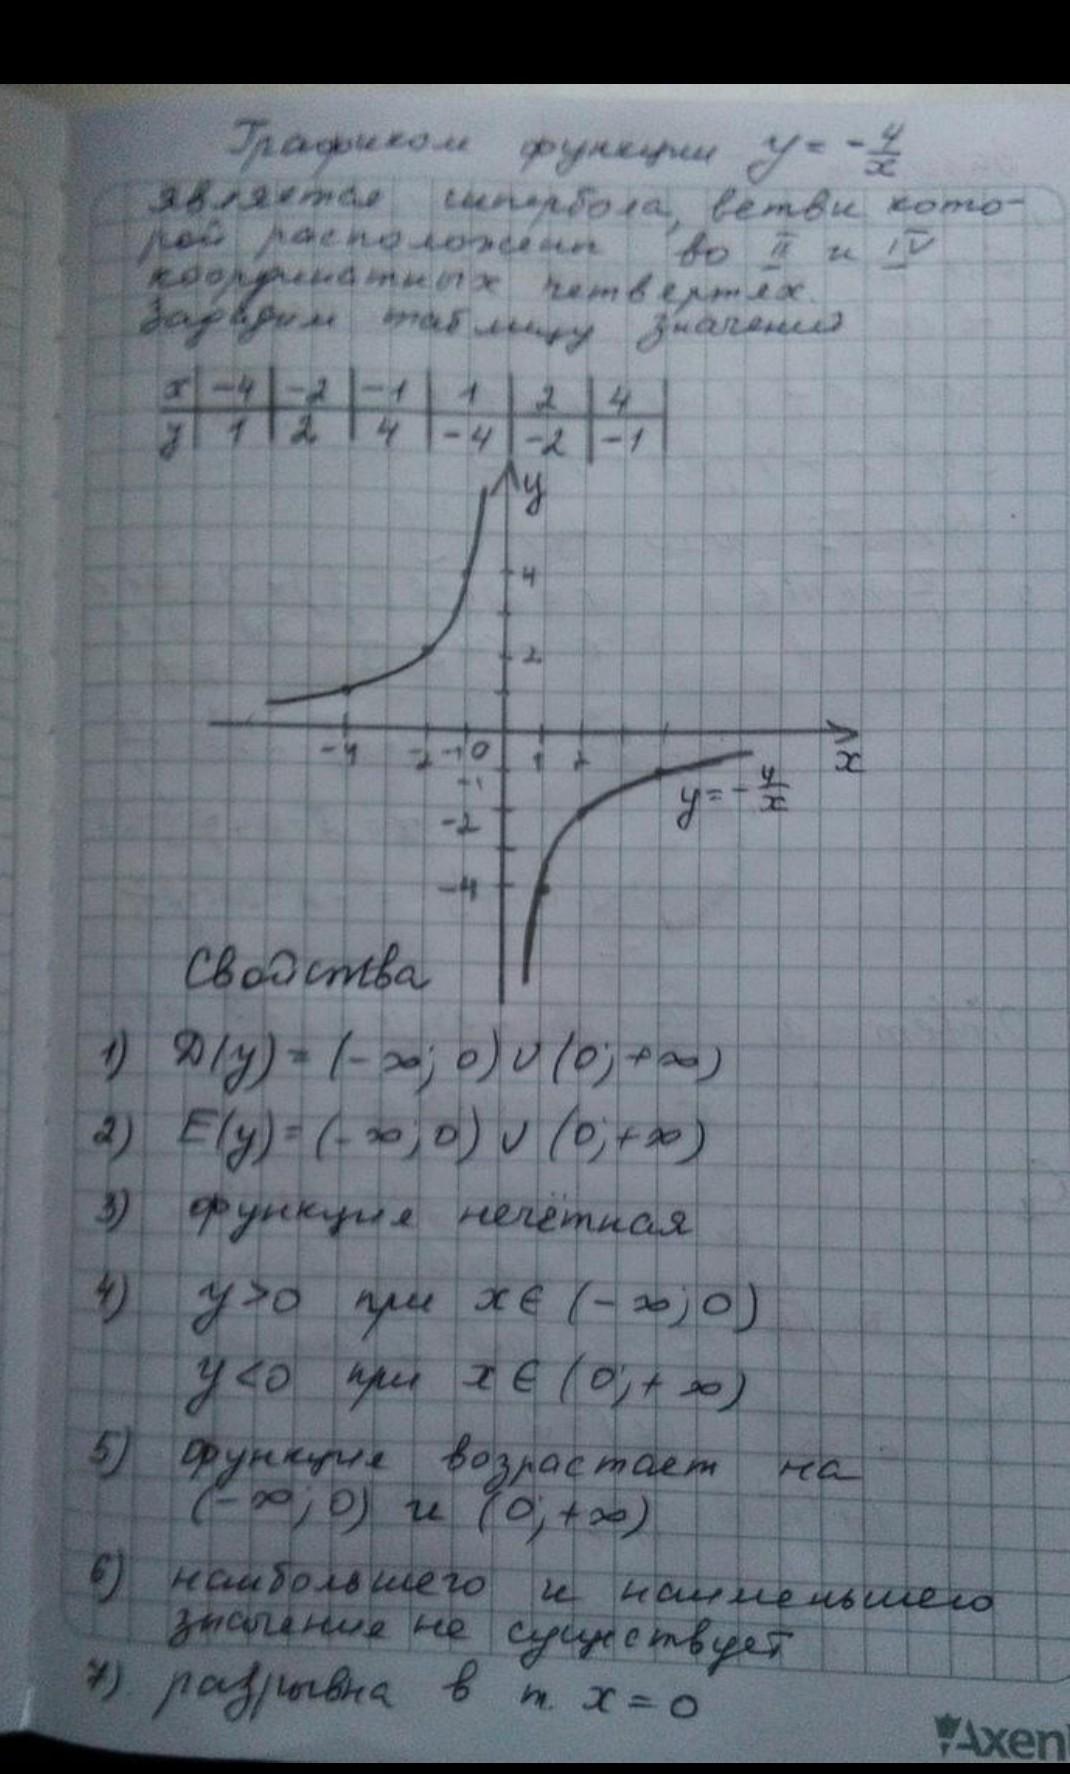 Графиком функции y = -4/x
является гипербола, ветви кото-
рой расположены во II и IV
координатных четвертях.
Зададим таблицу значений
x | -4 | -2 | -1 | 1 | 2 | 4 |
y | 1 | 2 | 4 | -4 | -2 | -1 |
y
4
2
-4 -2 -1 0 1 2 x
-1
y = -4/x
-2
-4
Свойства
1) D(y) = (-∞; 0) ∪ (0; +∞)
2) E(y) = (-∞; 0) ∪ (0; +∞)
3) функция нечётная
4) y>0 при x ∈ (-∞; 0)
y<0 при x ∈ (0; +∞)
5) функция возрастает на
(-∞; 0) и (0; +∞)
6) наибольшего и наименьшего
значение не существует
7) разрывна в т. x = 0
Axen